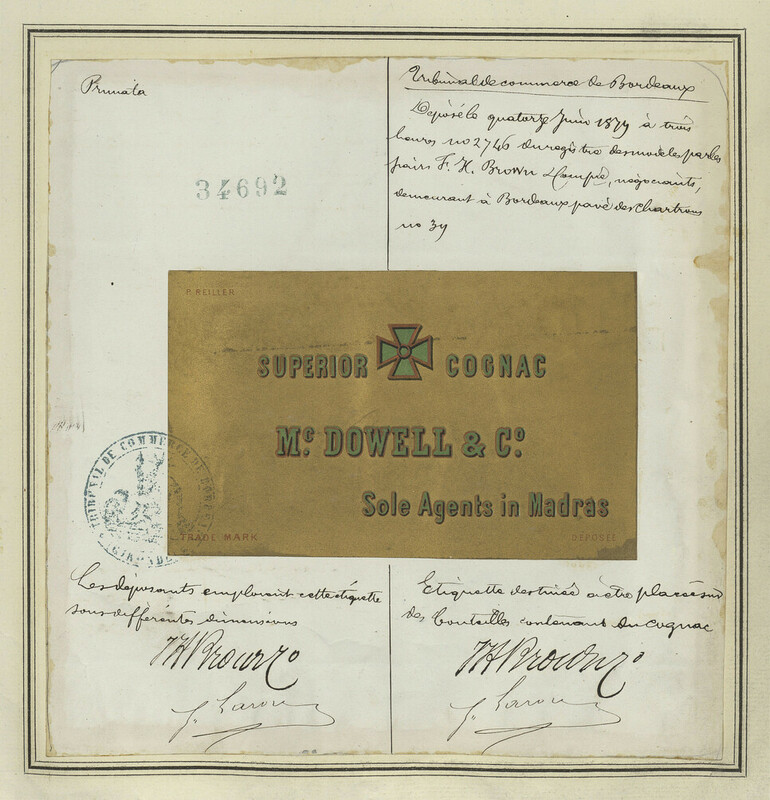 Primata
Tribunal de commerce de Bordeaux
Déposé le quatorze Juin 1879 à trois
heures no 2746 du registre des modèles par les
34692
pairs F. H. Brown & Compie, négociants,
demeurant à Bordeaux pavé des Chartrons
no 39
P. REILLER
SUPERIOR COGNAC
Mc DOWELL & Co.
Sole Agents in Madras
TRIBUNAL DE COMMERCE DE
TRADE MARK
DÉPOSÉE
Les déposants emploient cette étiquette
sous différentes dimensions
Etiquette destinée a être placée sur
des bouteilles contenant du cognac
FH Brown Co
FH Brown Co